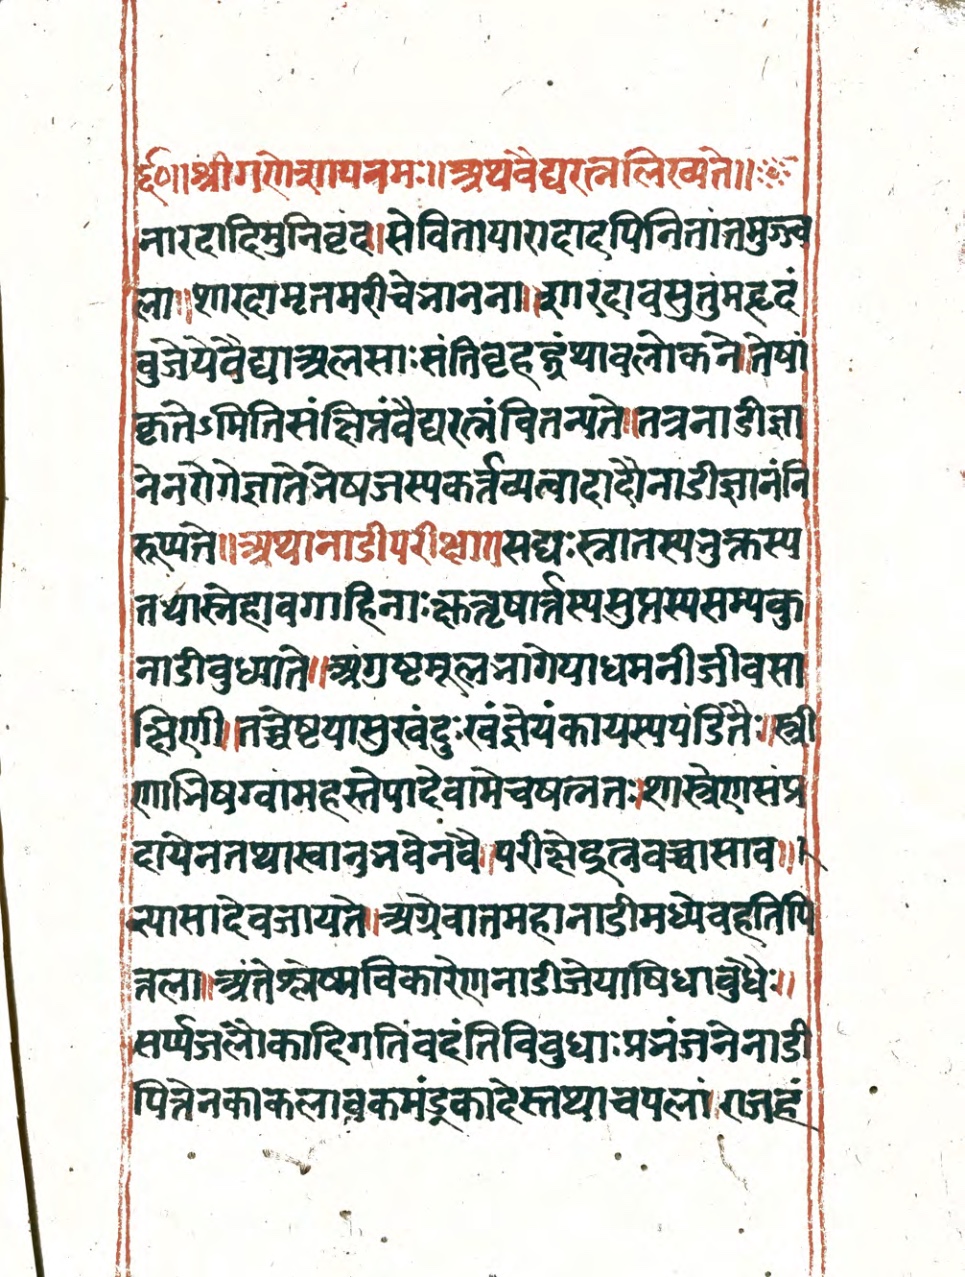 र्ह्द०॥श्रीगणेशायनमः॥अथवैद्यरत्नलिख्यते॥
नारदादिमुनिवृंद।सेवितायारादादपिनितांतमुज्व
ला॥शारदामृतमरीचेनानना॥शारदावसुतुमहृदं
वुजेयेवैद्याअलसाःसंतिवृहद्ग्रंथावलोकने॥तेषां
कृतेऽमितिसंक्षिप्तंवैद्यरत्नंवितन्यते॥तत्रनाडीज्ञा
नेनरोगेज्ञातेभेषजस्यकर्त्तव्यत्वादादौनाडीज्ञानंनि
रूप्यते॥अथानाडीपरीक्षा॥सद्यःस्नातस्यभुक्तस्य
तथास्नेहावगाहिनाःक्षुत्तृषार्त्तस्यसुप्तस्यसम्यकु
नाडीवुध्यते॥अंगुष्टमूलभागेयाधमनीजीवसा
क्षिणी॥तच्चेष्टयासुखंदुःखंज्ञेयंकायस्यपंडितैः॥स्त्री
णाभिषग्वामहस्तेपादेवामेचषत्नतः।शास्त्रेणसंप्र
दायेनतथास्वानुभवेनवै॥परीक्षेद्रत्नवच्चासाव॥
त्यासादेवजायते॥अग्रेवातमहानाडीमध्येवहतिपि
तला॥अंतेश्लेष्मविकारेणनाडीजेयाषिधावुधैः॥
सर्प्पजलौकादिगतिंवदंतिविवुधाःप्रभंजनेनाडी
पित्तेनकाकलावकमंडूकादेस्तथाचपलां।राजहं